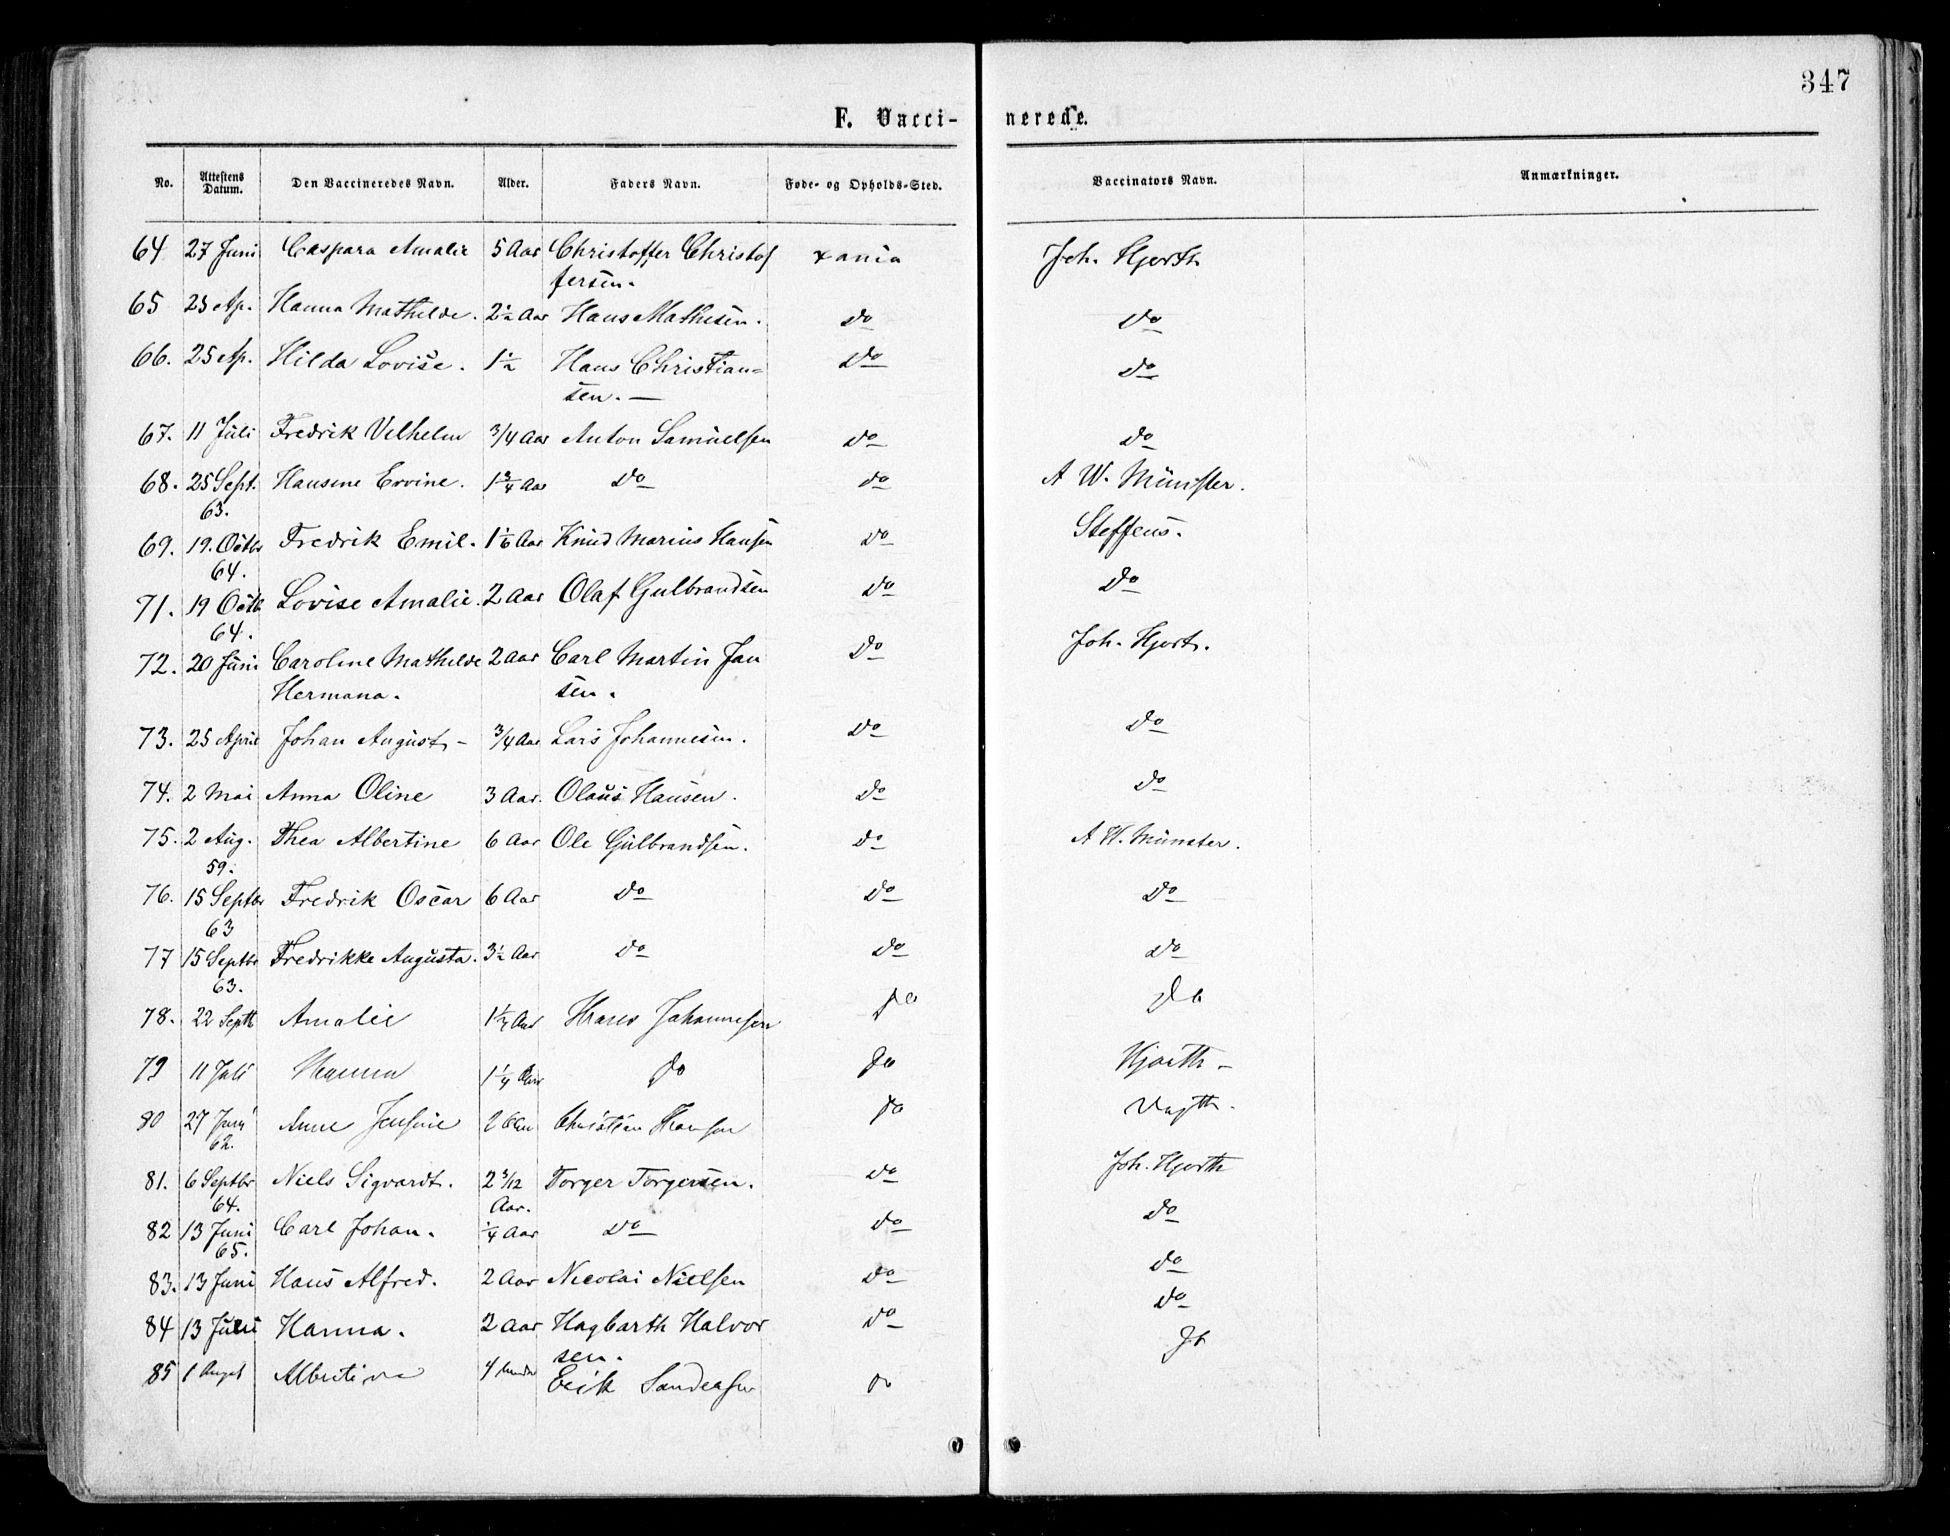 347
F. Vacci- nerede.
No. Attestens Datum. Den Vaccineredes Navn. Alder. Faders Navn. Føde- og Opholds-Sted. Vaccinators Navn. Anmærkninger.
64 27 Juni Caspara Amalie 5 Aar Christoffer Christof xania Joh. Hjorth
fersen.
65 25 Ap. Hanna Mathilde. 2½ Aar Hans Mathisen. do do
66. 25 Ap. Hilda Lovise. 1½ Hans Christian= do do
sen. —
67. 11 Juli Fredrik Vilhelm 3/4 Aar Anton Samuelsen do do
68. 25 Sept. Hansine Ervine. 1¾ Aar do do A W. Münster.
63.
69. 19. Octbr Fredrik Emil. 1⅙ Aar Knud Marius Hansen do Steffens.
64.
71. 19 Octb Lovise Amalie. 2 Aar Olaf Gulbrandsen do do
64.
72. 20 Juni Caroline Mathilde 2 Aar Carl Martin Jan do Joh. Hjort.
Hermana. sen.
73. 25 April Johan August - 3/4 Aar Lars Johannesen. do do
74. 2 Mai Anna Oline 3 Aar. Olaus Hansen. do do
75. 2 Aug. Thea Albertine 6 Aar Ole Gulbrandsen. do A W. Münster.
59.
76. 15 Septbr Fredrik Oscar 6 Aar do do do
63
77 15 Septbr Fredrikke Augusta. 3½ Aar do do do
63.
78. 22 Septb Amalie 1¼ Aar Hans Johannesen do do
79 11 Juli Hanna 1¼ Aar do do Hjorth -
80 27 Juni Anne Jensine 2 Aar Christian Hansen do
62.
81. 6 Septbr Niels Sigvardt. 2 3/12 Torger Torgersen. do Joh. Hjorth
64. Aar.
82 13 Juni Carl Johan. ¼ Aar do do do
65.
83. 13 Juni Hans Alfred. 2 Aar Nicolai Nielsen do do
84 13 Juli Hanna. 2 Aar Hagbarth Halvor do do
sen.
85 1 August Albertine 4 Erik do do